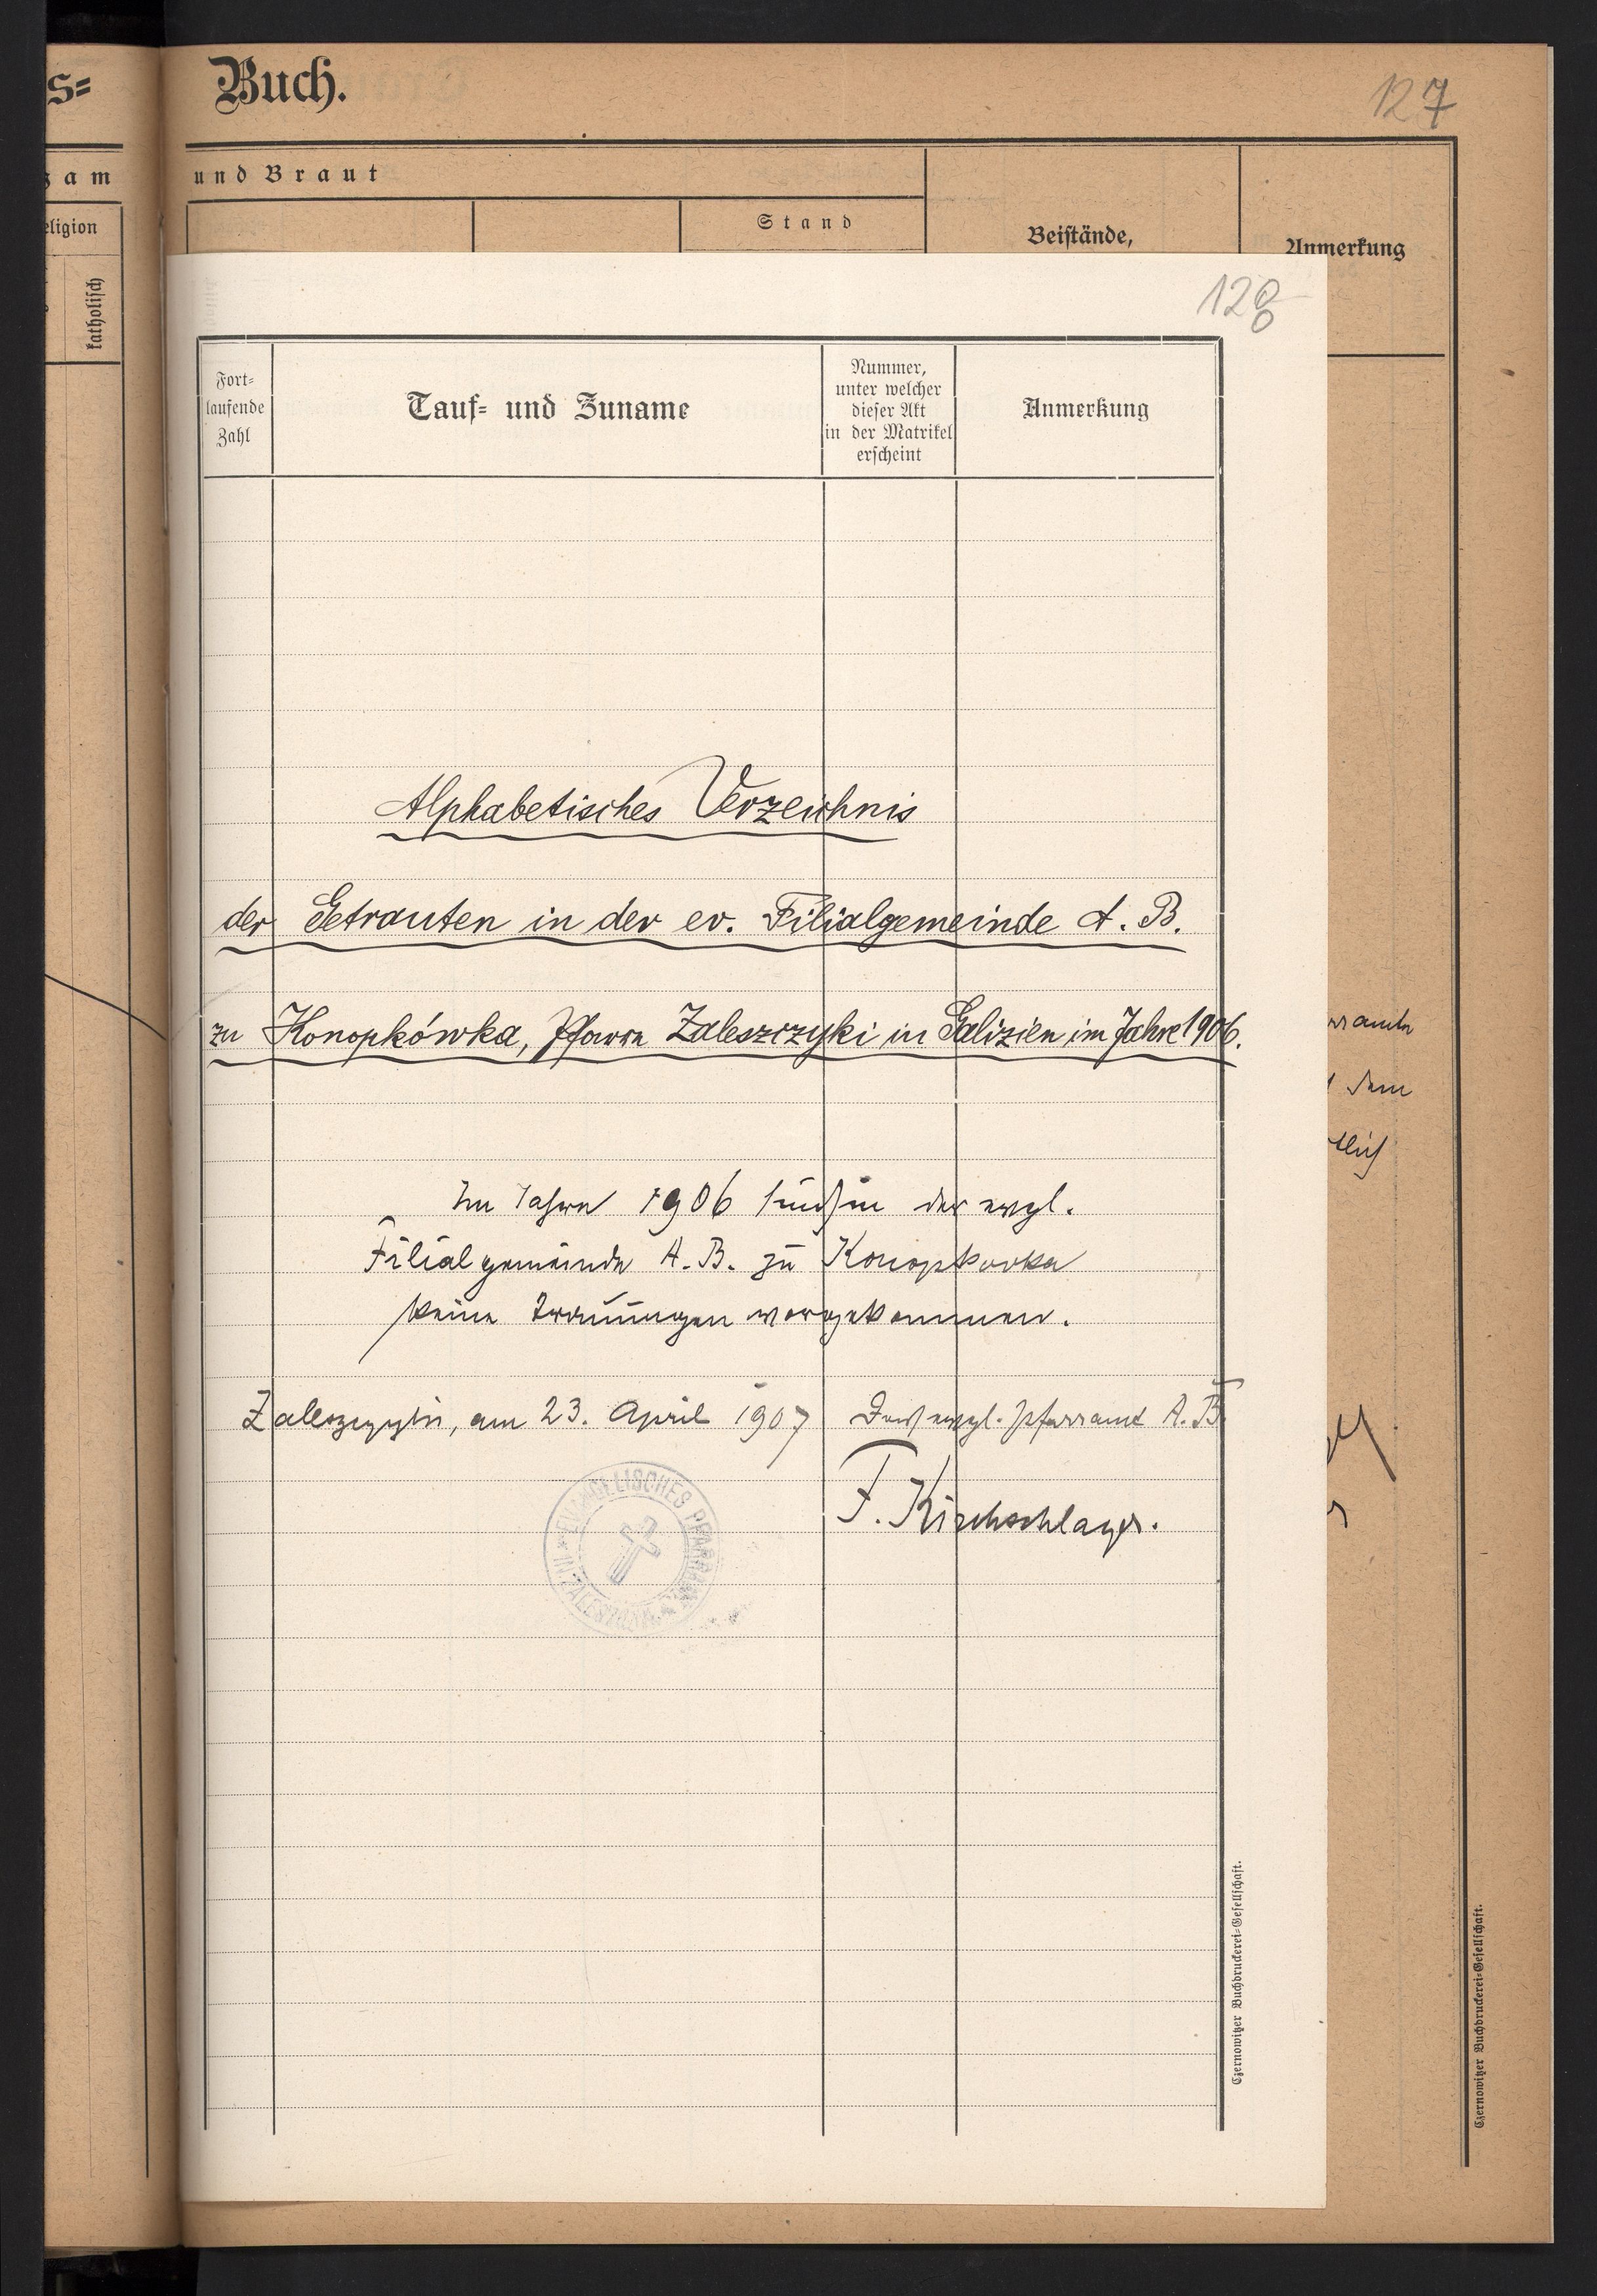 s=
Buch.
127
zam
und Braut
eligion
katholisch
Stand
Beistände,
Anmerkung
128
Fort=
laufende
Zahl
Tauf= und Zuname
Nummer,
unter welcher
dieser Akt
in der Matrikel
erscheint
Anmerkung
Alphabetisches Verzeichnis
der Getrauten in der ev. Filialgemeinde A. B.
zu Konopkówka, Pfarre Zaleszczyki in Galizien im Jahre 1906.
Im Jahre 1906 sind in der evgl.
Filialgemeinde A. B. zu Konopkovka
keine Trauungen vorgekommen.
Zaleszczyki, am 23. April 1907 Das evgl. Pfarramt A. B.
F. Kirchschlager.
EVANGELISCHES PFARRAMT
IN ZALESZCZYKI
Czernowitzer Buchdruckerei=Gesellschaft.
Czernowitzer Buchdruckerei=Gesellschaft.